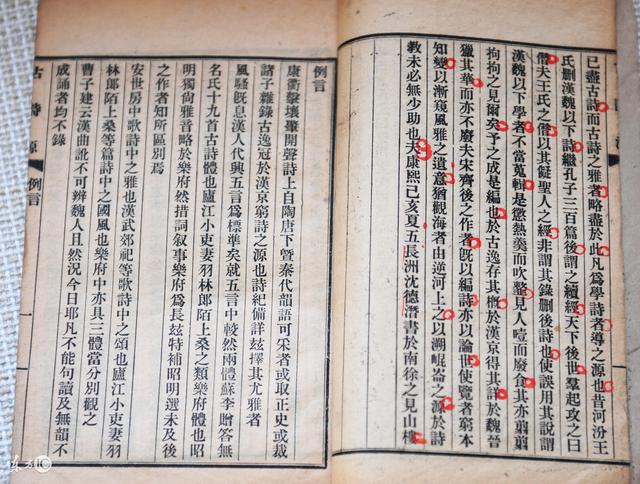 已盡古詩而古詩之雅者略盡於此凡爲學詩者導之源也昔河汾王
氏刪漢魏以下詩繼孔子三百篇後謂之續經天下後世羣起攻之曰
僭夫王氏之僭以其儗聖人之經非謂其錄刪後詩也使誤用其說謂
漢魏以下學者不當蒐輯是懲熱羹而吹虀見人噎而廢食其亦翦翦
拘拘之見爾矣予之成是編也於古逸存其槪於漢京得其詳於魏晉
獵其華而亦不廢夫宋齊後之作者旣以編詩亦以論世使覽者窮本
知變以漸窺風雅之遺意猶觀海者由逆河上之以溯崐崙之源於詩
敎未必無少助也夫康熙己亥夏五長洲沈德潛書於南徐之見山樓
例言
康衢擊壤肇開聲詩上自陶唐下曁秦代韻語可采者或取正史或裁
諸子雜錄古逸冠於漢京窮詩之源也詩紀備詳玆擇其尤雅者
風騷旣息漢人代興五言爲標準矣就五言中較然兩體蘇李贈答無
名氏十九首古詩體也廬江小吏妻羽林郎陌上桑之類樂府體也昭
明獨尙雅音略於樂府然措詞敘事樂府爲長玆特補昭明選未及後
之作者知所區別焉
安世房中歌詩中之雅也漢武郊祀等歌詩中之頌也廬江小吏妻羽
林郎陌上桑等篇詩中之國風也樂府中亦具三體當分別觀之
曹子建云漢曲訛不可辨魏人且然況今日耶凡不能句讀及無韻不
成誦者均不錄
古詩源
例言
一